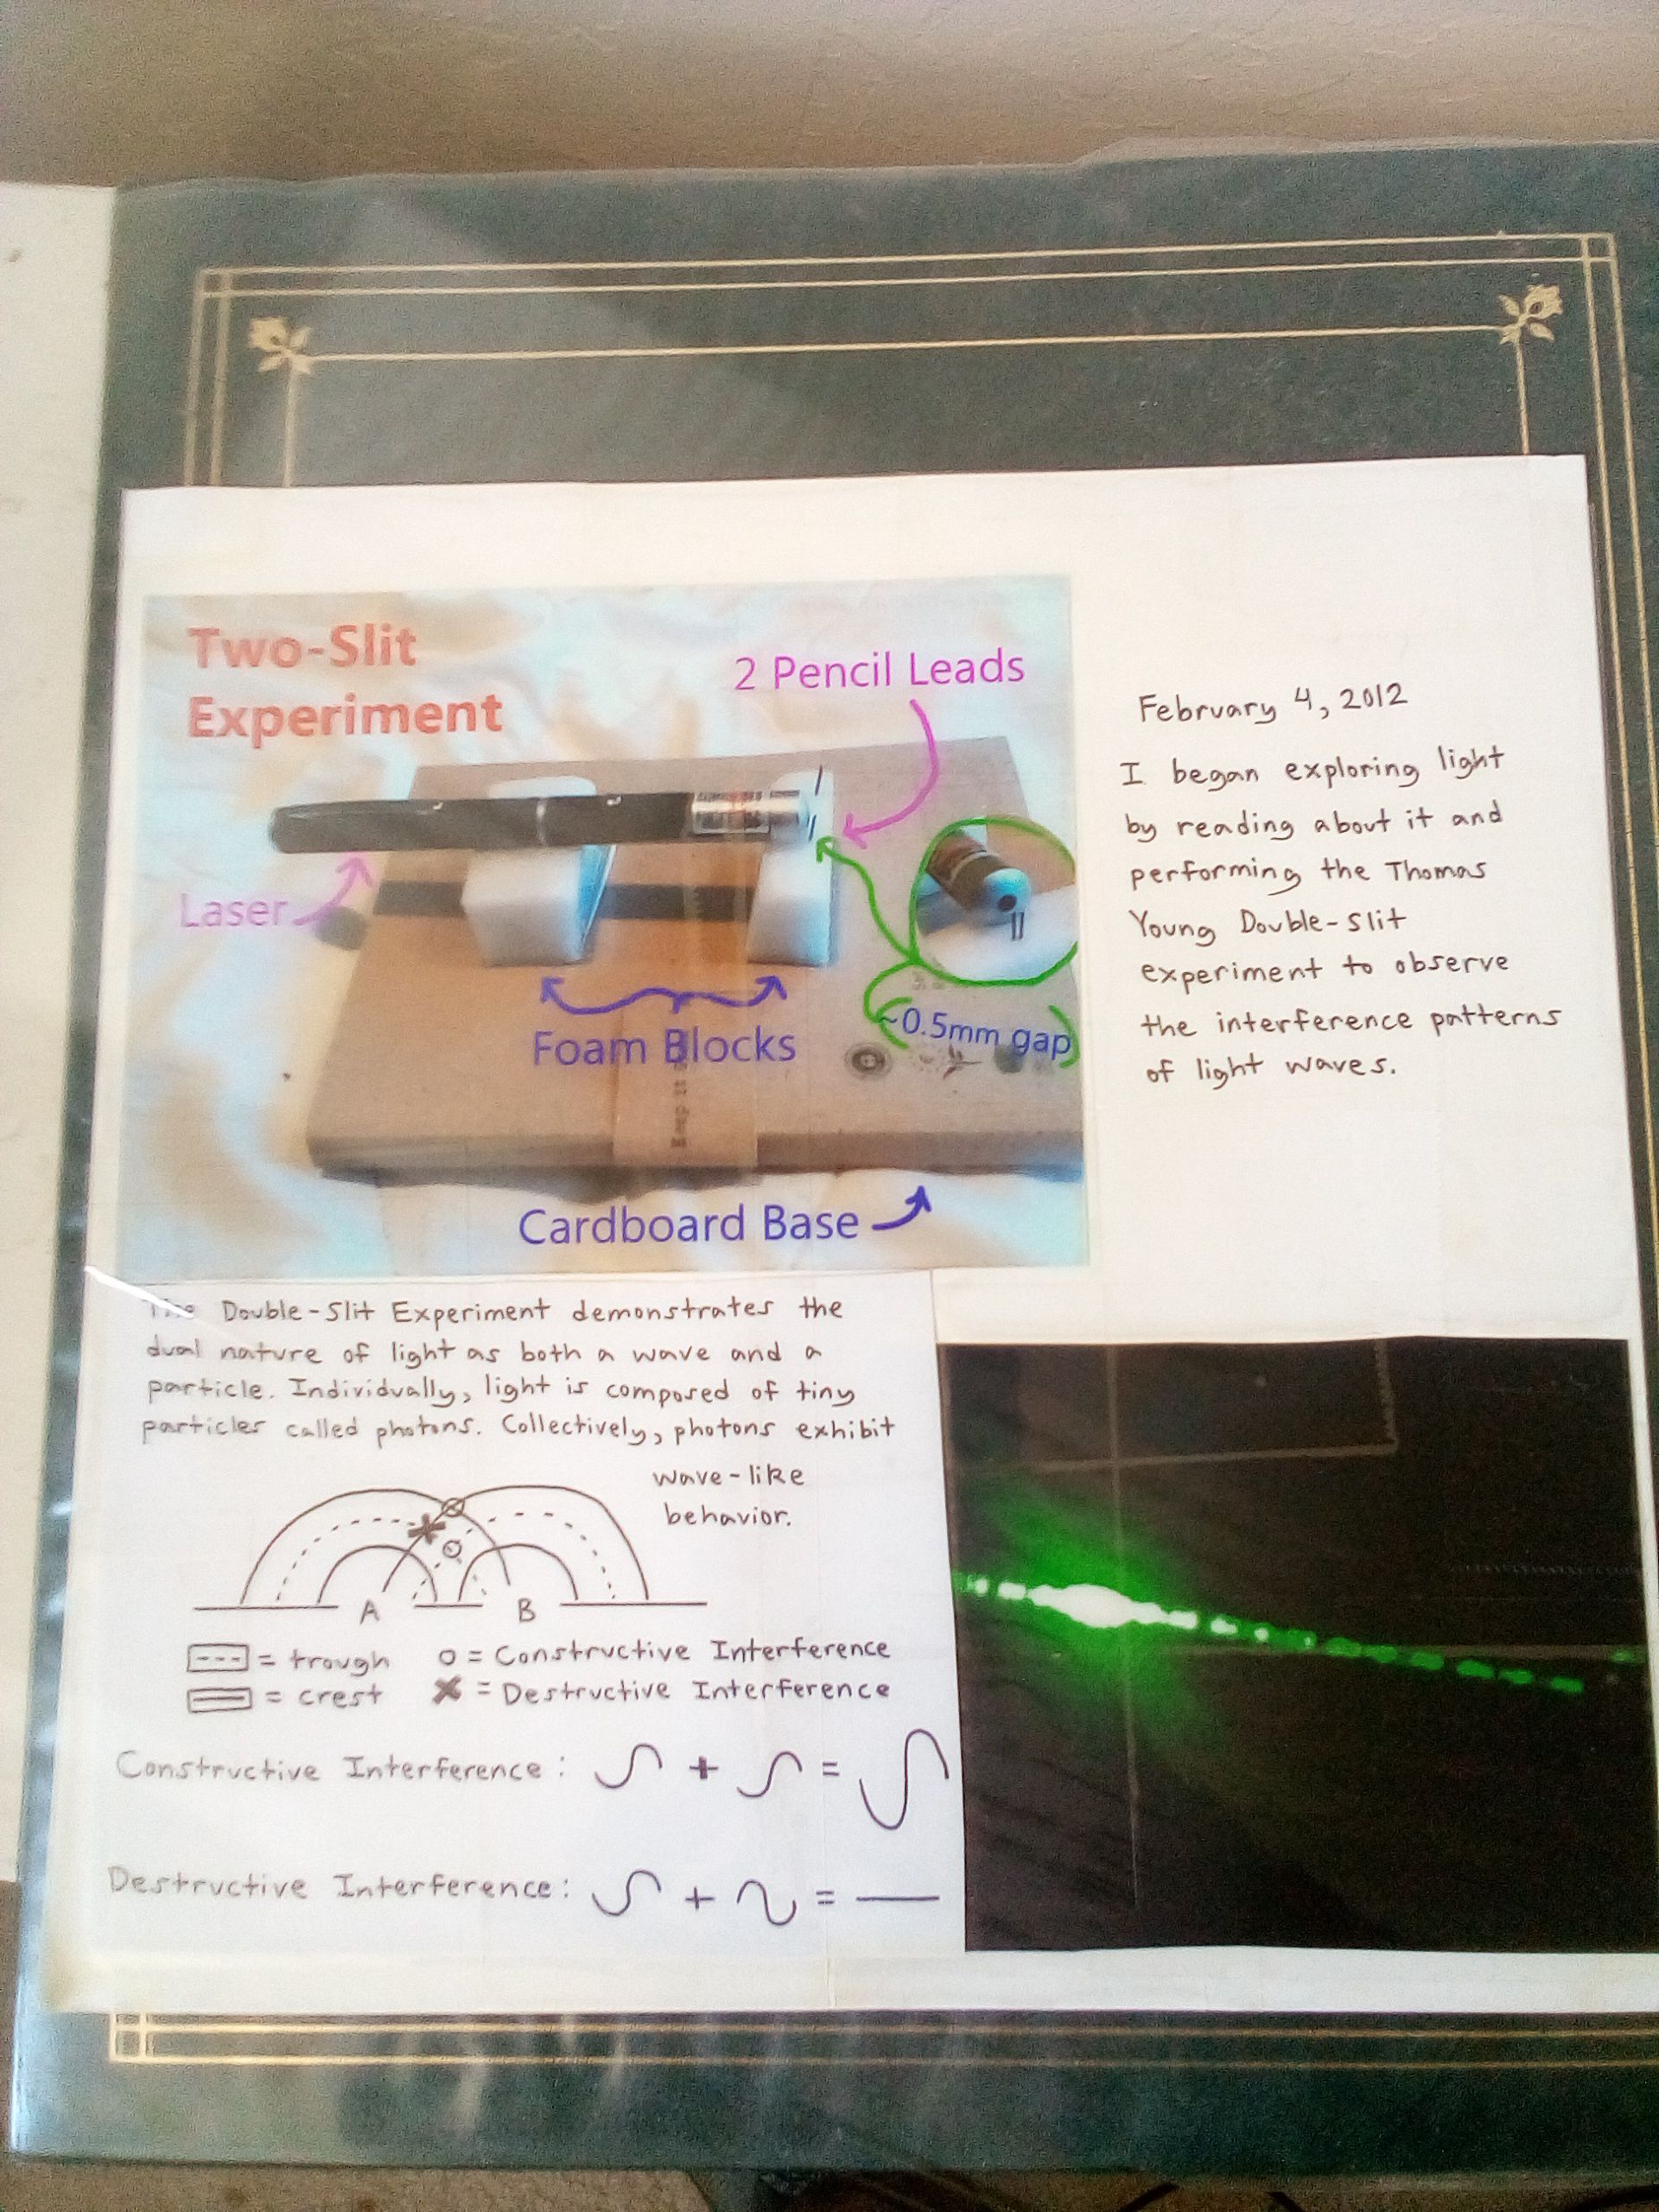 Two-Slit
Experiment
2 Pencil Leads
Laser
Foam Blocks
~0.5mm gap
Cardboard Base
February 4, 2012
I began exploring light
by reading about it and
performing the Thomas
Young Double-Slit
experiment to observe
the interference patterns
of light waves.
The Double-Slit Experiment demonstrates the
dual nature of light as both a wave and a
particle. Individually, light is composed of tiny
particles called photons. Collectively, photons exhibit
wave-like
behavior.
A B
--- = trough o = Constructive Interference
— = crest x = Destructive Interference
Constructive Interference: + =
Destructive Interference: + = —